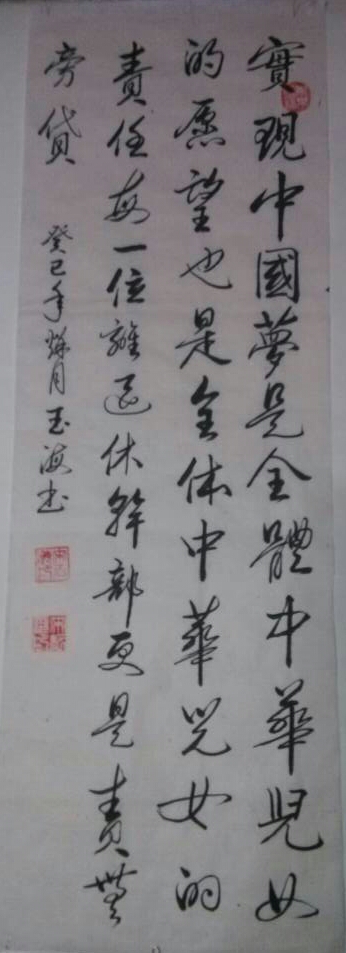 實現中國夢是全體中華兒女
的愿望也是全体中華兒女的
責任每一位離退休幹部更是責無
旁貸
癸巳年月玉海书